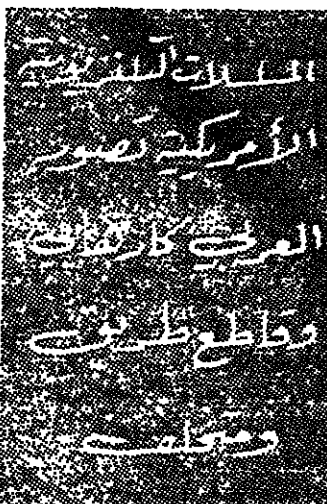 المسلسلات التلفزيونية
الأمريكية تصور
العربي كإرهابي
وقاطع طريق
ومتخلف